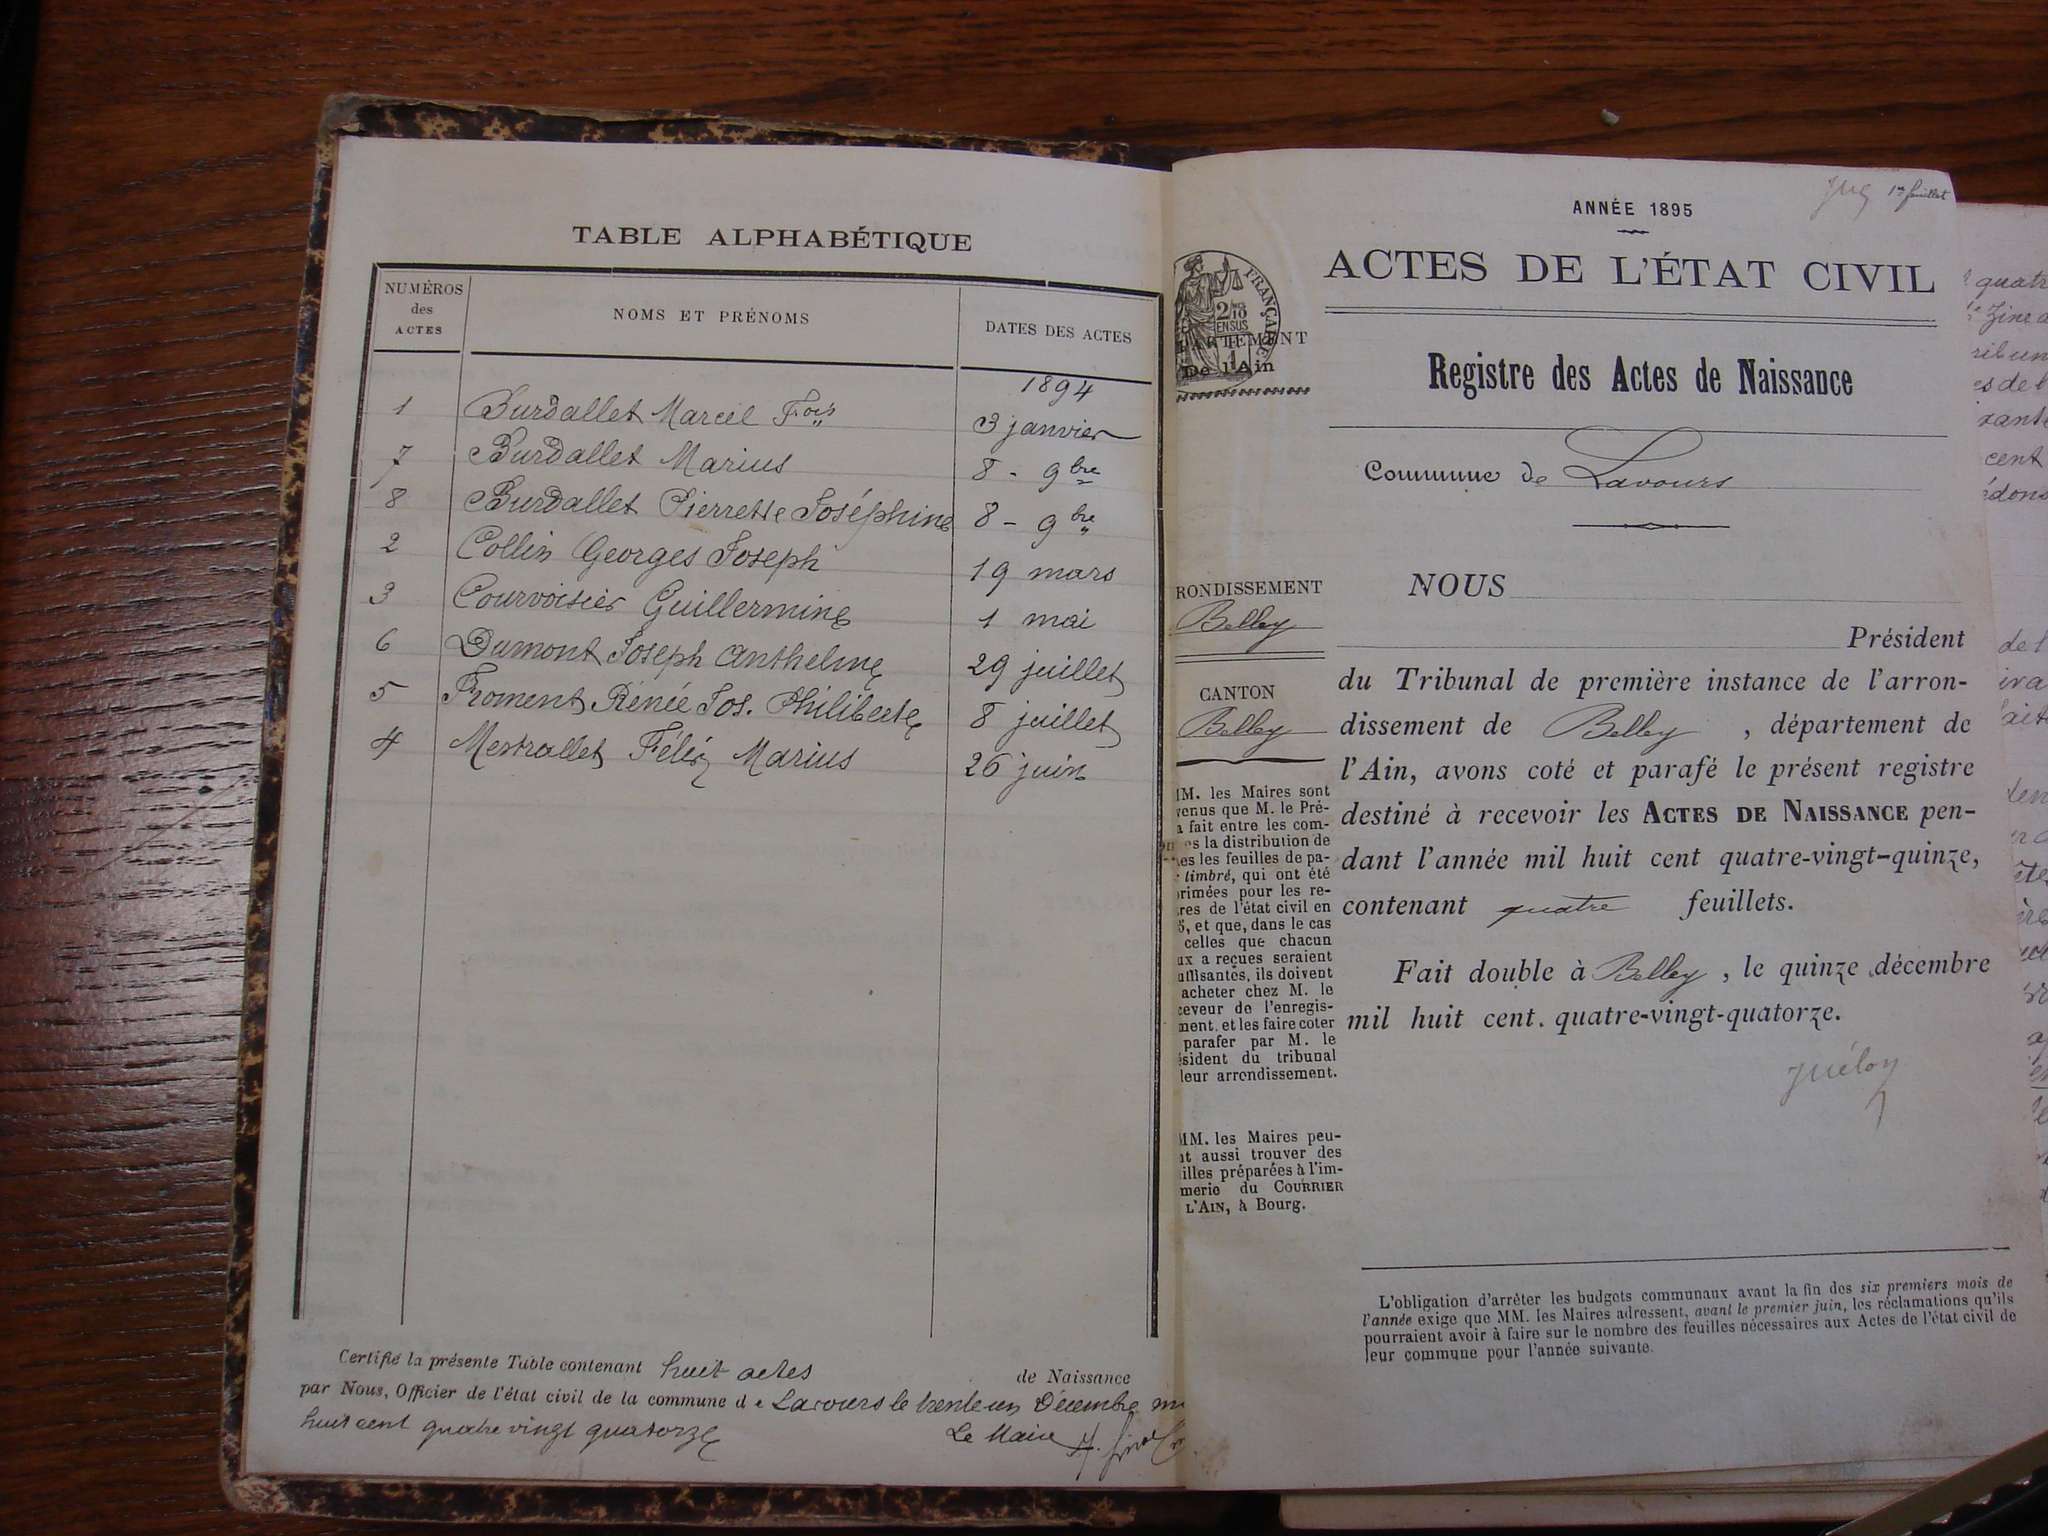 TABLE ALPHABÉTIQUE
NUMÉROS des ACTES
NOMS ET PRÉNOMS
DATES DES ACTES
1894
1 Burdallet Marcel Fois 3 janvier
7 Burdallet Marius 8 - 9bre
8 Burdallet Pierrette Joséphine 8 - 9bre
2 Collin Georges Joseph 19 mars
3 Courvoisier Guillermine 1 mai
6 Dumont Joseph Anthelme 29 juillet
5 Froment Rénée Jos. Philiberte 8 juillet
4 Mestrallet Félix Marius 26 juin
Certifié la présente Table contenant huit actes de Naissance
par Nous, Officier de l'état civil de la commune de Lavours le trente un Décembre mil
huit cent quatre vingt quatorze
Le Maire
1er feuillet
ANNÉE 1895
ACTES DE L'ÉTAT CIVIL
FRANÇAISE
2/10
EN SUS
PARTEMENT
De l'Ain
Registre des Actes de Naissance
Commune de Lavours
RONDISSEMENT
Belley
CANTON
Belley
MM. les Maires sont
venus que M. le Pré-
a fait entre les com-
es la distribution de
es les feuilles de pa-
timbré, qui ont été
primées pour les re-
res de l'état civil en
5, et que, dans le cas
celles que chacun
ux a reçues seraient
uffisantes, ils doivent
acheter chez M. le
ceveur de l'enregis-
ment. et les faire coter
parafer par M. le
ésident du tribunal
leur arrondissement.
MM. les Maires peu-
nt aussi trouver des
illes préparées à l'im-
merie du COURRIER
L'AIN, à Bourg.
NOUS
Président
du Tribunal de première instance de l'arron-
dissement de Belley, département de
l'Ain, avons coté et parafé le présent registre
destiné à recevoir les ACTES DE NAISSANCE pen-
dant l'année mil huit cent quatre-vingt-quinze,
contenant quatre feuillets.
Fait double à Belley, le quinze décembre
mil huit cent. quatre-vingt-quatorze.
L'obligation d'arrêter les budgets communaux avant la fin des six premiers mois de
l'année exige que MM. les Maires adressent, avant le premier juin, les réclamations qu'ils
pourraient avoir à faire sur le nombre des feuilles nécessaires aux Actes de l'état civil de
leur commune pour l'année suivante.